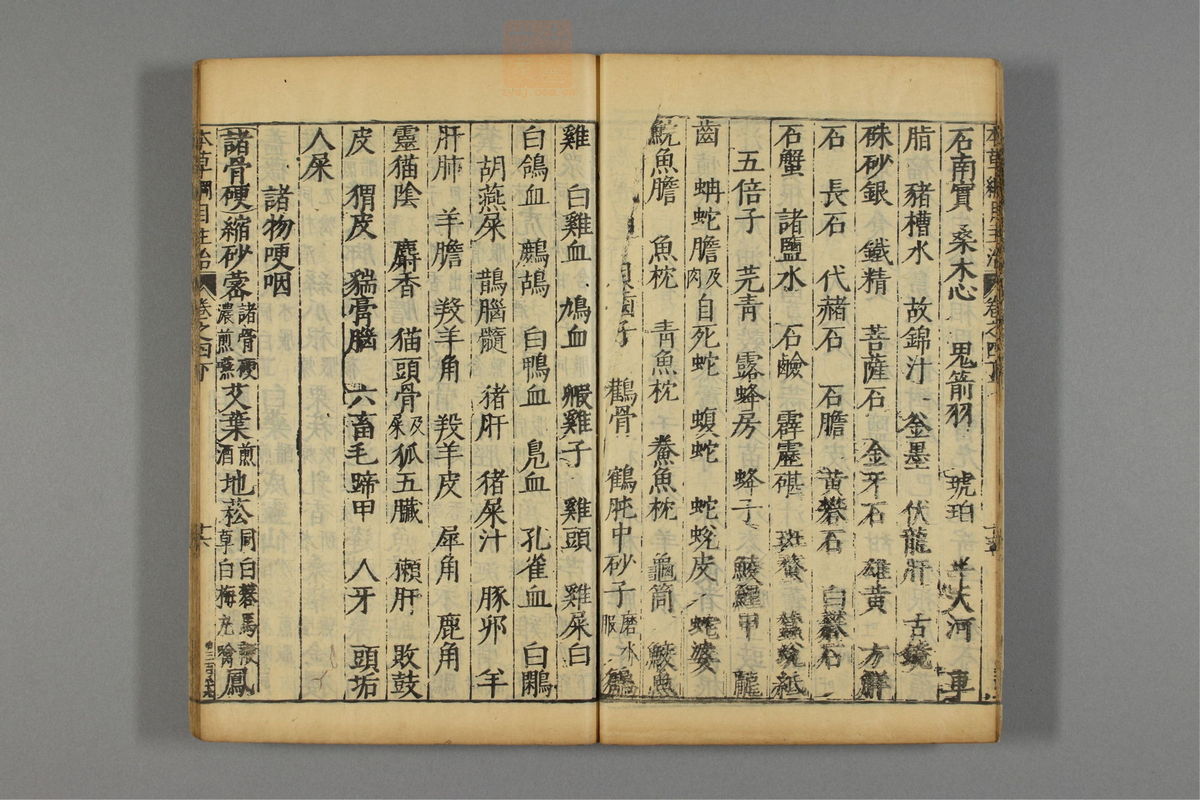 石南實 桑木心 鬼箭羽 琥珀 半天河 車
脂 豬槽水 故錦汁 金墨 伏龍肝 古鏡
硃砂銀 鐵精 菩薩石 金牙石 雄黃 方解
石 長石 代赭石 石膽 黃礬石 白礬石
石蟹 諸鹽水 石鹼 霹靂碪 斑蝥 蠶蛻紙
五倍子 芫青 露蜂房 蜂子 鯪鯉甲 龍
齒 蚺蛇膽及肉 自死蛇 蝮蛇 蛇蛻皮 蛇婆
鯇魚膽 魚枕 青魚枕 鮝魚枕 龜筒 鮫魚
貝子 鸛骨 鶴肫中砂子磨水服
雞 白雞血 鳩血 毈雞子 雞頭 雞屎白
白鴿血 鷓鴣 白鴨血 鳧血 孔雀血 白鷴
胡燕屎 鵲腦髓 猪肝 猪屎汁 豚卵 羊
肝肺 羊膽 羖羊角 羖羊皮 犀角 鹿角
靈猫陰 麝香 猫頭骨及屎 狐五臟 獺肝 敗鼓
皮 猬皮 猯膏腦 六畜毛蹄甲 人牙 頭垢
人屎
諸物哽咽
諸骨硬 縮砂蔤諸骨硬濃煎嚥 艾葉煎酒 地菘同白礬馬鞭草白梅丸噙 鳳
本草綱目主治 卷之四下